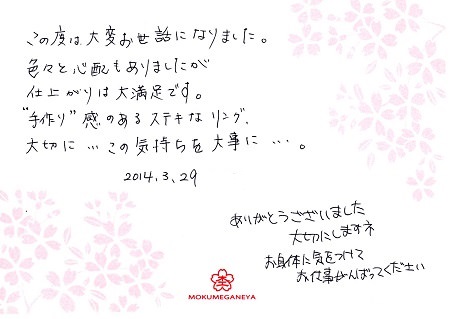 この度は大変お世話になりました。
色々と心配もありましたが
仕上がりは大満足です。
"手作り"感のあるステキなリング、
大切に…この気持ちを大事に…。
2014.3.29
ありがとうございました
大切にしますネ
お身体に気をつけて
お仕事がんばってください
MOKUMEGANEYA